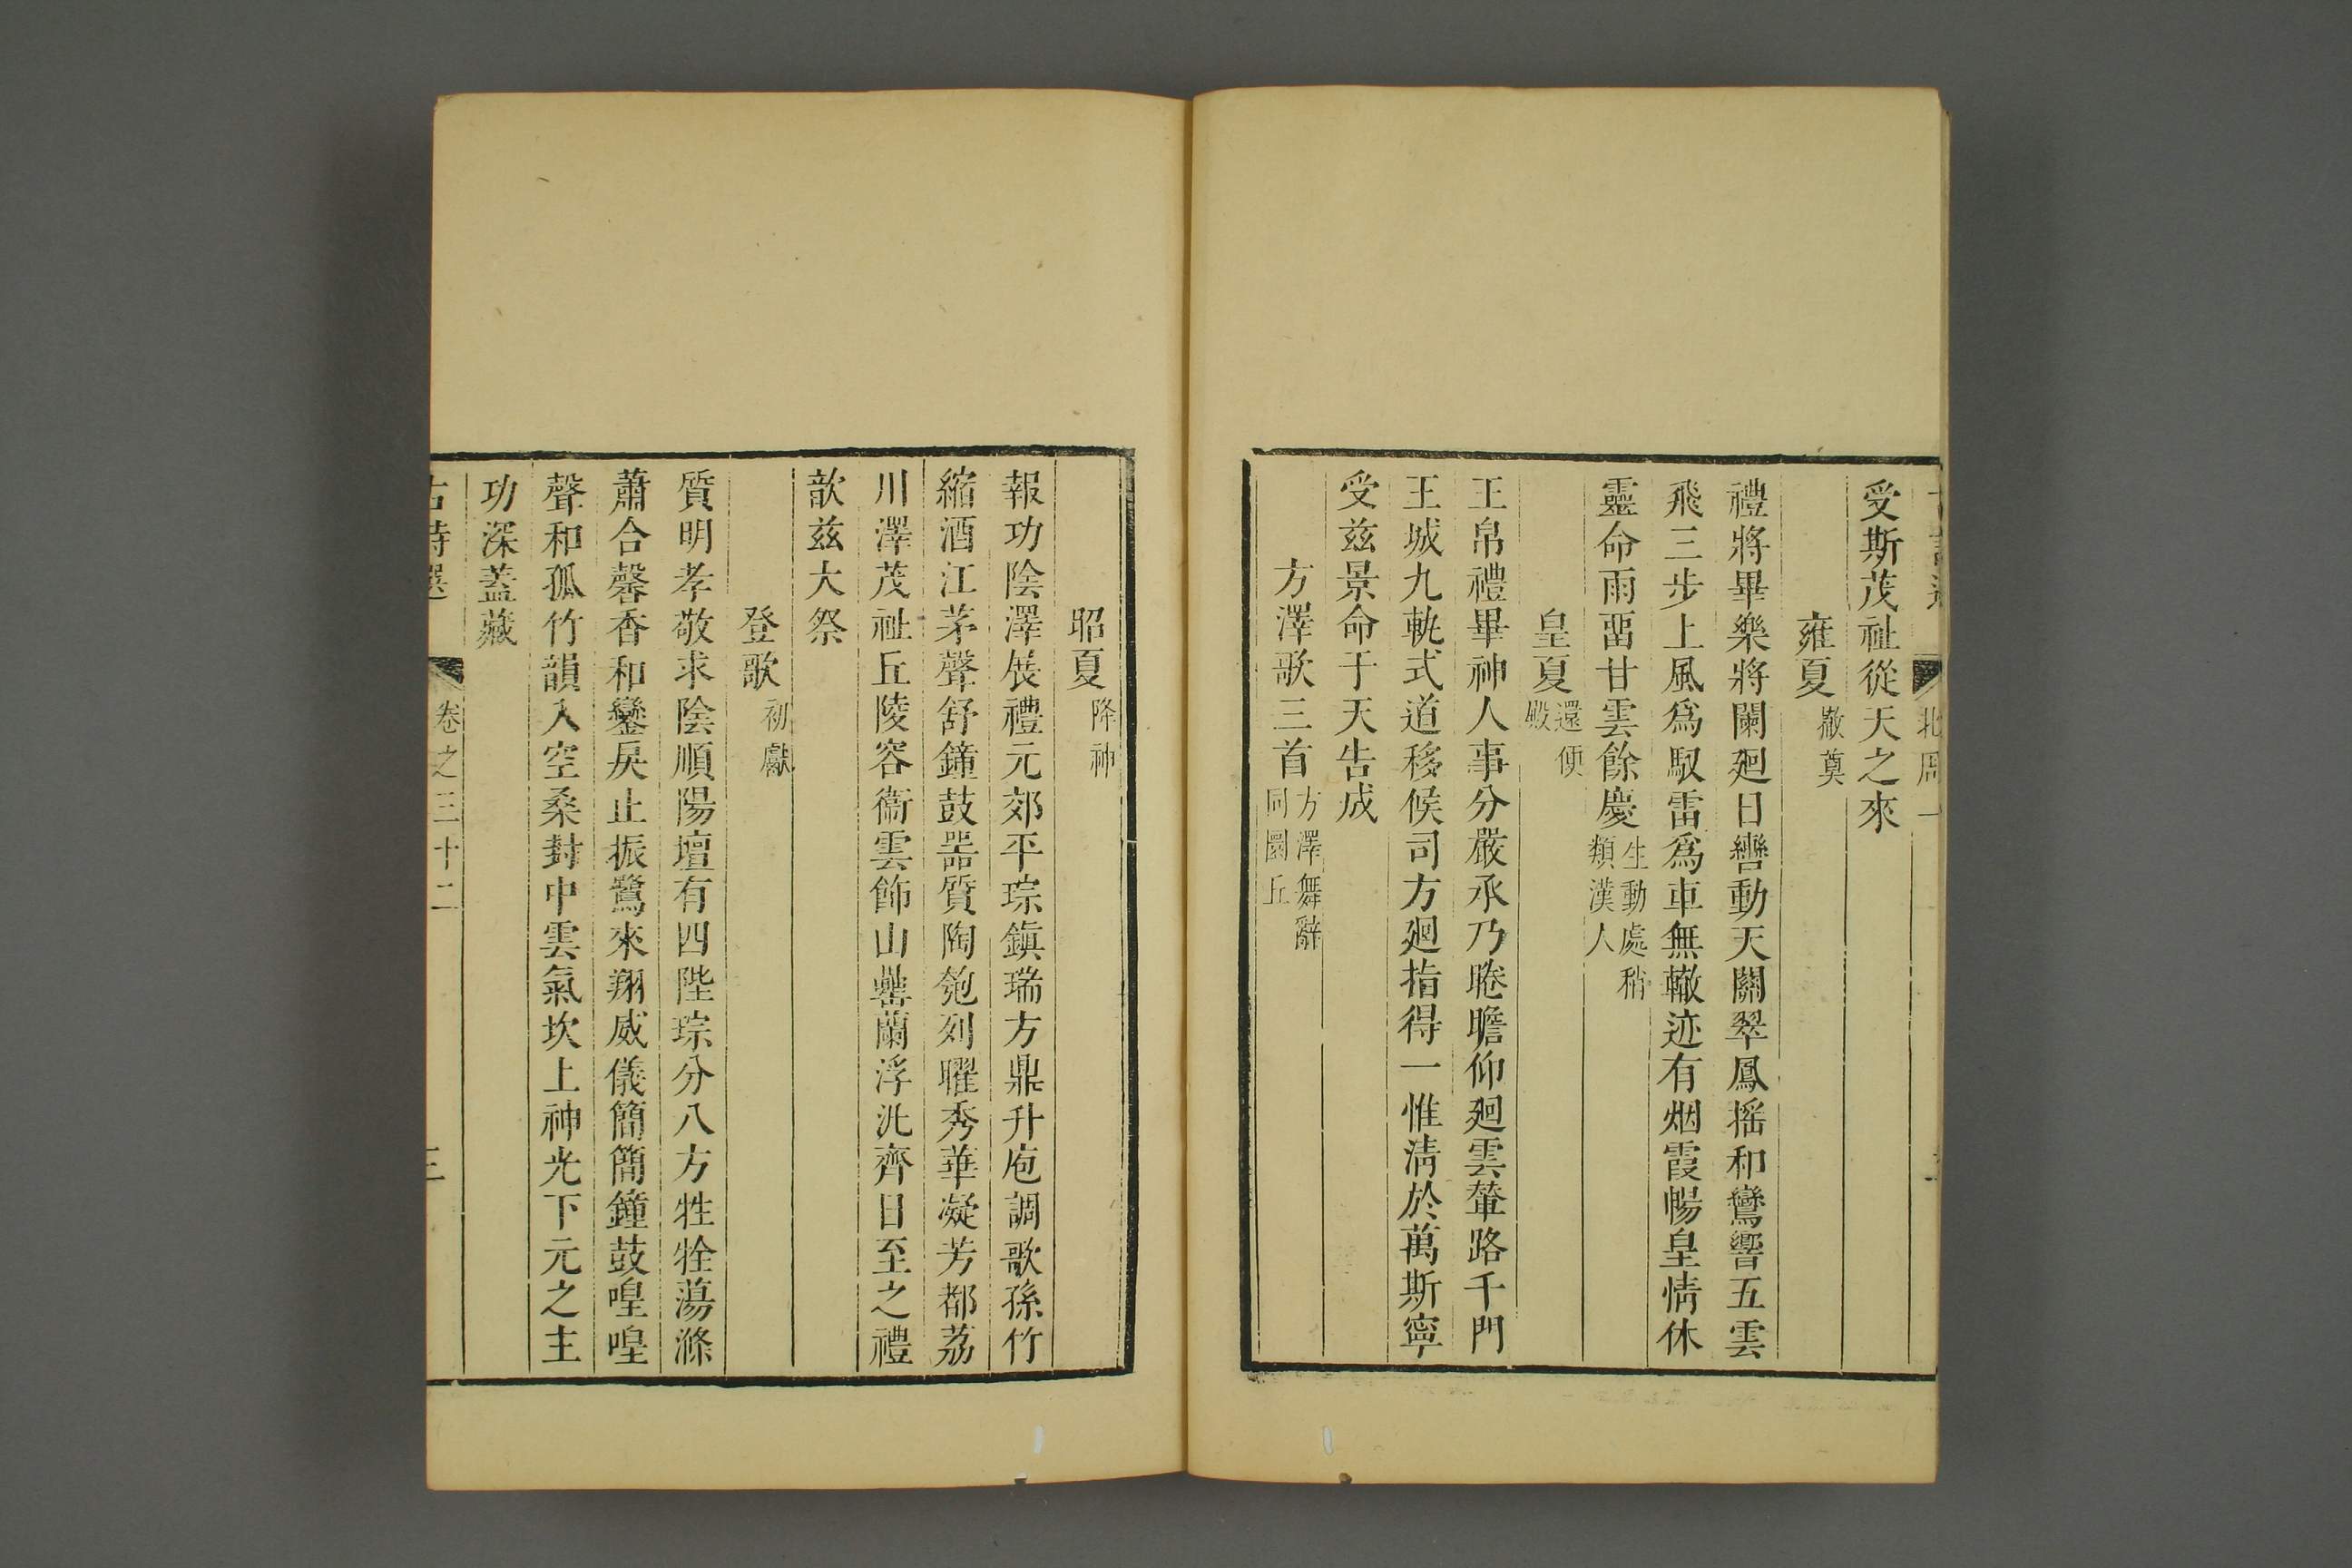 北周一
受斯茂祉從天之來
雍夏 撤奠
禮將畢樂將闌廻日轡動天關翠鳳搖和鸞響五雲
飛三步上風爲馭雷爲車無轍迹有烟霞暢皇情休
靈命雨畱甘雲餘慶 生動處稍類漢人
皇夏 還便殿
王帛禮畢神人事分嚴承乃睠瞻仰廻雲輦路千門
王城九軌式道移候司方廻指得一惟淸於萬斯寧
受兹景命于天告成
方澤歌三首 方澤舞辭同圜丘
昭夏 降神
報功陰澤展禮元郊平琮鎭瑞方鼎升庖調歌孫竹
縮酒江茅聲舒鐘鼓噐質陶匏列曜秀華凝芳都荔
川澤茂祉丘陵容衞雲飾山罍蘭浮汎齊日至之禮
歆兹大祭
登歌 初獻
質明孝敬求陰順陽壇有四陛琮分八方牲牷蕩滌
蕭合馨香和鑾戾止振鷺來翔威儀簡簡鐘鼓喤喤
聲和孤竹韻入空桑封中雲氣坎上神光下元之主
功深蓋藏
古詩選 卷之三十二 三